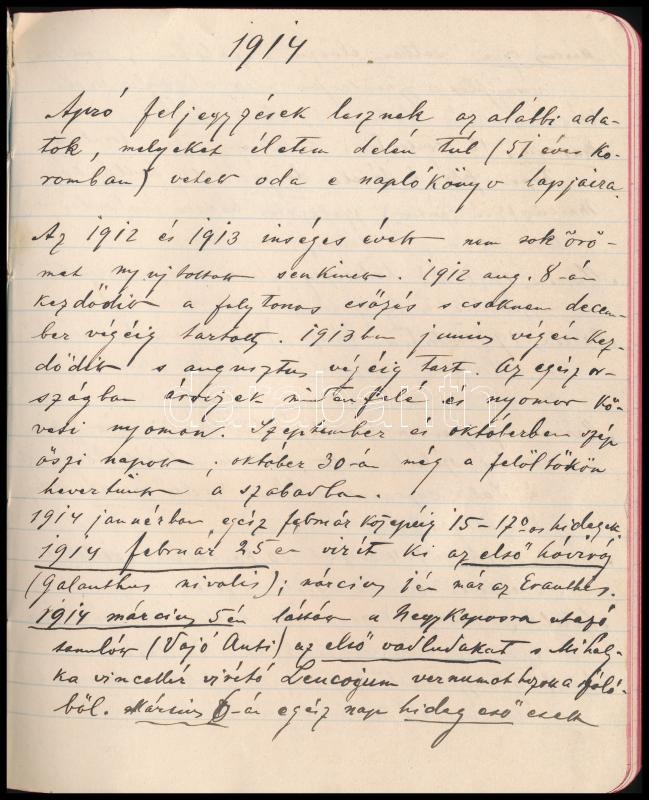 1914
Apró feljegyzések lesznek az alábbi ada-
tok, melyeket életem delén túl (51 éves ko-
romban) vetek oda e naplókönyv lapjaira.
Az 1912 és 1913 inséges évek nem sok örö-
met nyujtottak senkinek. 1912 aug. 8-án
kezdődik a folytonos esőzés s csaknem decem-
ber végéig tartott. 1913ban junius végén kez-
dődik s augusztus végéig tart. Az egész or-
szágban árvizek mindenfelé és nyomor kö-
veti nyomon. Szeptember és októberben szép
őszi napok; oktober 30-án még a felöltőkön
hevertünk a szabadban.
1914 januárban, egész február közepéig 15-17°os hidegek.
1914 február 25én virít ki az első hóvirág
(Galanthus nivalis); március 1én már az Eranthis.
1914 március 5én láttam a Nagykaposra utazó
tanuló (Vajó Anti) az első vadludakat s Mihály-
ka vincellér virító Leucojum vernumot hozott a
ből. Március 6-án egész nap hideg eső esett
darabanth